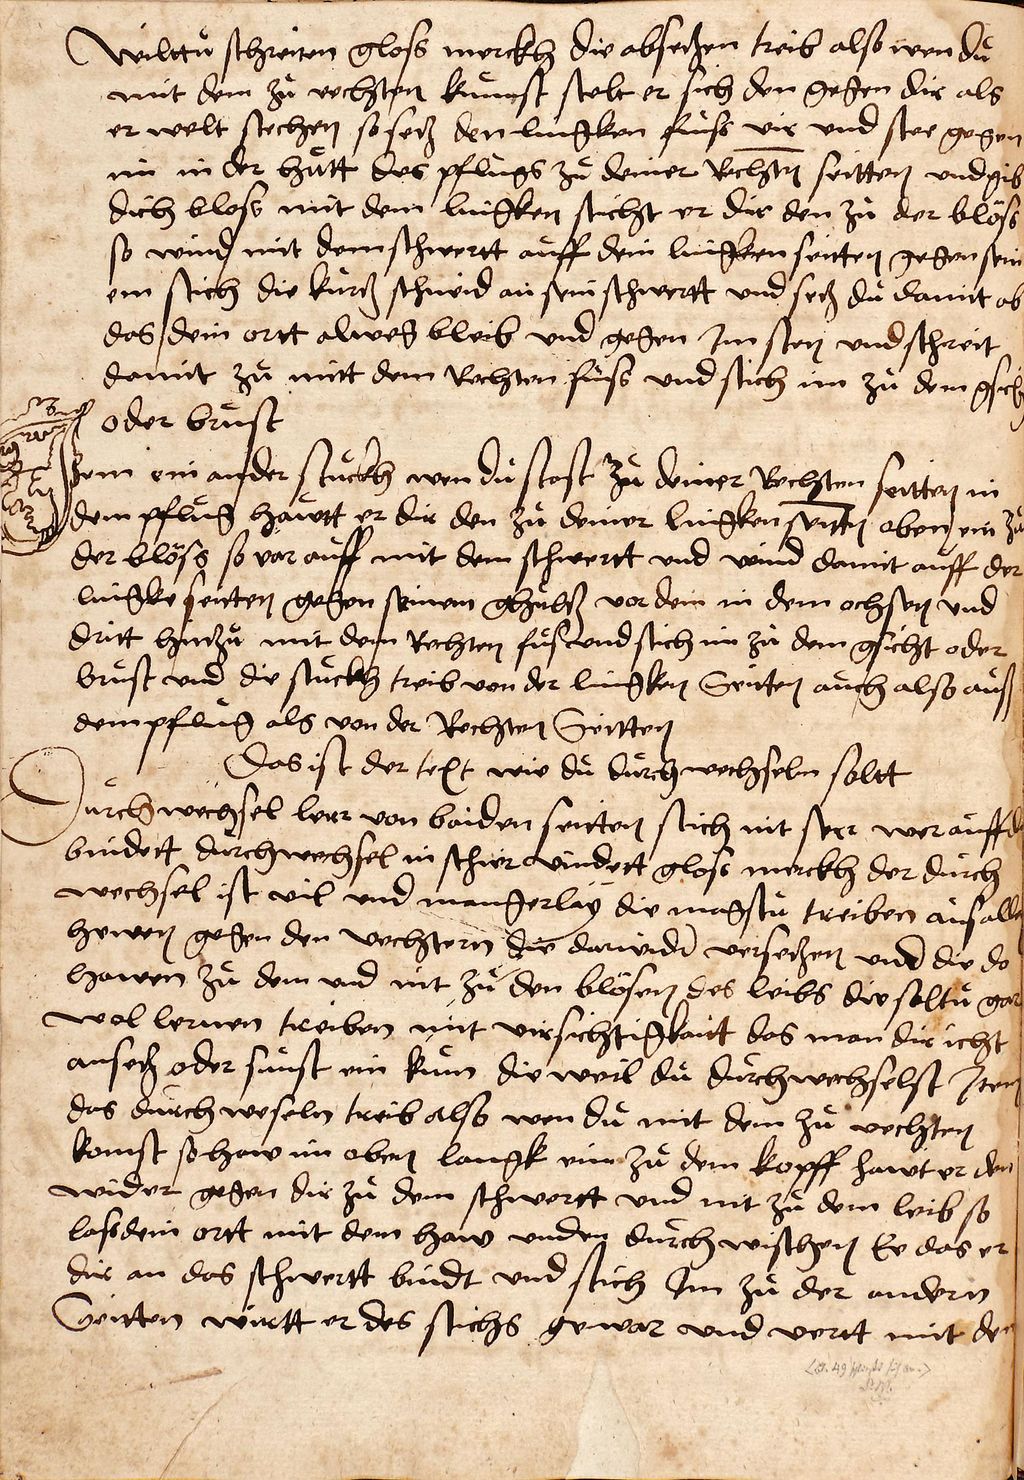 Wilttu schreiten gloss merckh die absetzen treib also wen du
mit dem zu vechten kumst stelt er sich den gegen dir als
er welt stechen so setz den lingken fuss vir und stee gegen
im in der hůtt des pflůgs zů deiner Rechten seitten und gib
dich bloss mit dem lingken sticht er dir den zů der blöss
so wind mit dem schwertt auff dein lingken seitten gegen sein
em stich die kurtz schneid an sein schwertt und setz dů damit ab
das dein ortt alweg bleib und gegen Im sten und schreit
damit zů mitt dem Rechten fůss und stich im zů dem gsicht
oder brůst
Item ein ander stuckh wen dů stost zů deiner Rechten seitten in
dem pflůg hawtt er dir den zů deiner lingken seitten oben ein zů
der blöss so var auff mit dem schwertt und wind damit auff der
lingke seitten gegen seinem ghůltz vor dein in dem ochsen und
dritt hinzů mit dem Rechten fůs und stich im zů dem gsicht oder
brůst und die stuckh treib von der lingken Seitten auch also auß
dem pflůg als von der Rechten Seitten
Das ist der text wie dů důrchwechseln soltt
Důrchwechsel lerr von baiden seitten stich mit serr wer auff dich
bindett důrchwechsel in schier vindett gloss merckh der důrch
wechsel ist vil und mangerlay die magstu treiben aus allen
hewen gegen den vechtern die da wider versetzen und die do
hawen zů dem und nit zů den blösen des leibs die soltů gar
wol lernen treiben mit virsichtigkait das man dir icht
ansetz oder sůnst ein kům die weil dů důrchwechselst Item
das důrch weseln treib also wen dů mit dem zů vechten
komst so haw im oben langk ein zů dem kopff hawt er den
wider gegen dir zů dem schwertt und nit zů dem leib so
las dein ortt mit dem haw unden důrch wischen Ee das er
dir an das schwertt bindt und stich Im zů der andern
Seitten wirtt er des stichs gewar und vertt mit dem